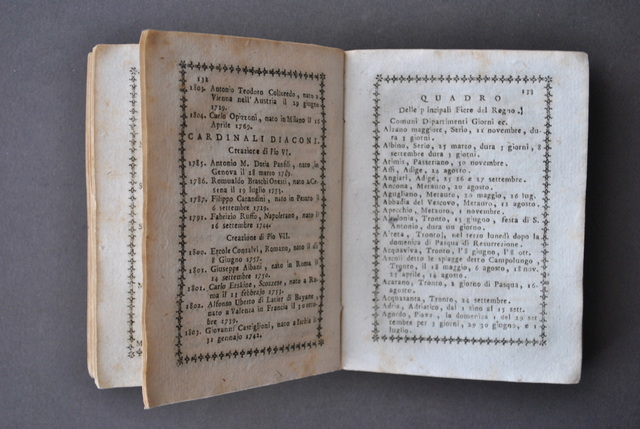 132
1803. Antonio Teodoro Colloredo, nato a
Vienna nell' Austria il 29 giugno
1729.
1804. Carlo Opizzoni, nato in Milano il
Aprile 1769.
CARDINALI DIACONI.
Creazione di Pio VI.
1785. Antonio M. Doria Panfili, nato in
Genova il 28 marzo
1786. Romoaldo Braschi Onesti, nato a Ce-
sena il 19 luglio 1753.
1787. Filippo Carandini, nato in Pesaro il
6 settembre 1729.
1791. Fabrizio Ruffo, Napoletano, nato il
16 settembre 1744.
Creazione di Pio VII.
1800. Ercole Consalvi, Romano, nato il dì
8 Giugno 1757.
1801. Giuseppe Albani, nato in Roma il
14 settembre 1750.
1801. Carlo Erskine, Scozzese, nato a Ro-
ma il 13 febbrajo 1753.
1802. Alfonso Uberto di Latier di Bayane,
nato a Valenza in Francia il 30 otto-
bre 1739.
1803. Giovanni Castiglioni, nato a Ischia il
31 gennaro 1742.
133
QUADRO
Delle principali Fiere del Regno.
Comuni Dipartimenti Giorni ec.
Alzano maggiore, Serio, 11 novembre, du-
ra 3 giorni.
Albino, Serio, 25 marzo, dura 3 giorni, 8
settembre dura 3 giorni.
Arimis, Passeriano, 30 novembre.
Affi, Adige, 24 agosto.
Angiari, Adige, 25 26 e 27 settembre.
Ancona, Metauro, 20 agosto.
Agugliano, Metauro, 20 maggio, 16 lug.
Abbadia del Vescovo, Metauro, 11 agosto.
Apecchio, Metauro, 1 novembre.
Tronto, 13 giugno, festa di S.
Antonio, dura un giorno.
Tronto, nel terzo lunedì dopo la
domenica di Pasqua di Resurrezione.
Acquaviva, Tronto, l'8 giugno, l'8 ott.
Ascoli detto le spiagge detto Campolungo,
Tronto, il 18 maggio, 6 agosto, 18 nov.
aprile, 14 agosto.
Tronto, 2 giorno di Pasqua, 18
agosto.
Acquasanta, Tronto, 24 settembre.
Adria, Adriatico, dal 1 sino al 15 sett.
Agordo, Piave, la domenica 1 del 29 set-
tembre per 3 giorni, 29 30 giugno, e 1
luglio.